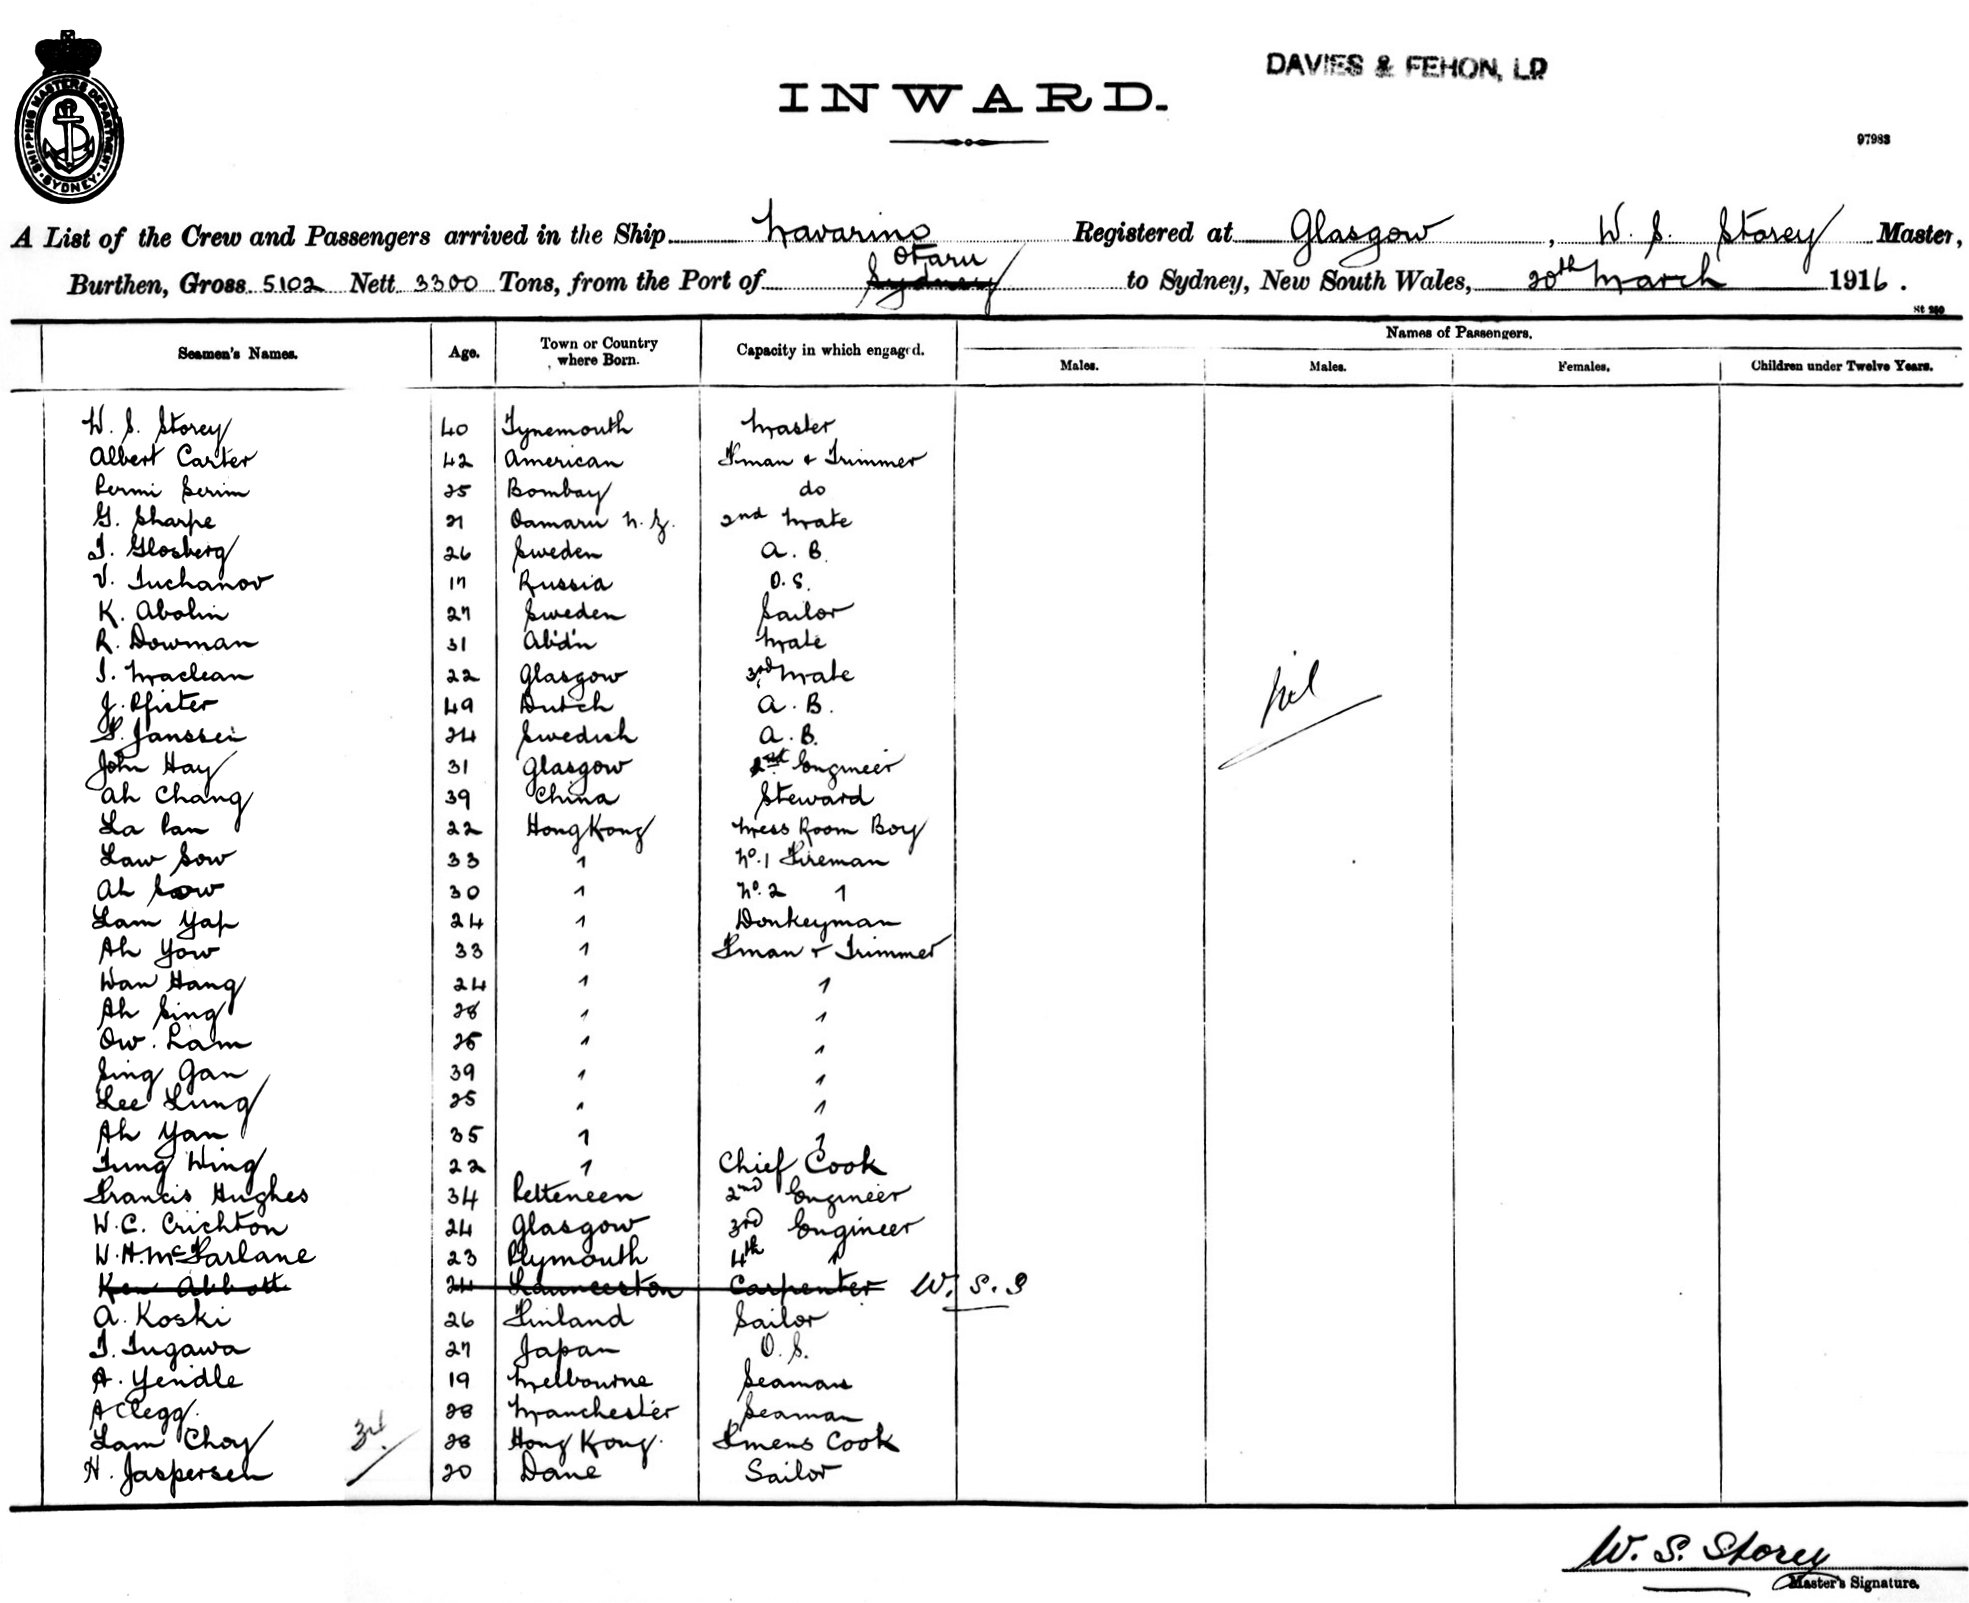 DAVIES & FEHON, LD
INWARD.
SHIPPING MASTERS DEPARTMENT. SYDNEY.
97983
A List of the Crew and Passengers arrived in the Ship Navarino Registered at Glasgow, W. S. Storey Master,
Otaru
Burthen, Gross 5102 Nett 3300 Tons, from the Port of Sydney to Sydney, New South Wales, 20th March 1916.
St 260
Names of Passengers.
Seamen's Names. Age. Town or Country where Born. Capacity in which engaged. Males. Males. Females. Children under Twelve Years.
W. S. Storey 40 Tynemouth Master
Albert Carter 42 American Fman & Trimmer
Permi Serim 25 Bombay do
G. Sharpe 21 Oamaru N. Z. 2nd Mate
T. Glosberg 26 Sweden A. B.
V. Tuchanov 17 Russia O. S.
K. Abolin 27 Sweden Sailor
R. Dowman 31 Mate
I. Maclean 22 Glasgow 3rd Mate
J. Pfister 49 Dutch A. B.
P. Janssei 24 Swedish A. B.
John Hay 31 Glasgow Engineer
Ah Chang 39 China Steward
La Pan 22 Hong Kong Mess Room Boy
Law Sow 33 " No. 1 Fireman
Ah Sow 30 " No. 2 "
Lam Yap 24 " Donkeyman
Ah Yow 33 " Fman & Trimmer
Wan Hang 24 " "
Ah Sing 28 " "
Ow. Lam 25 " "
Sing Gan 39 " "
Lee Lung 25 " "
Ah Yan 35 " "
Tung Wing 22 " Chief Cook
Francis Hughes 34 Pelteneen 2nd Engineer
W. C. Crichton 24 Glasgow 3rd Engineer
W. H. McFarlane 23 Plymouth 4th "
Ken Abbott 24 Launceston Carpenter W. S. S
A. Koski 26 Finland Sailor
T. Tugawa 27 Japan O. S.
A. Yendle 19 Melbourne Seaman
A Clegg. 28 Manchester Seaman
Lam Choy 3rd 28 Hong Kong. Fmens Cook
H. Jaspersen 20 Dane Sailor
Nil
W. S. Storey
Master's Signature.